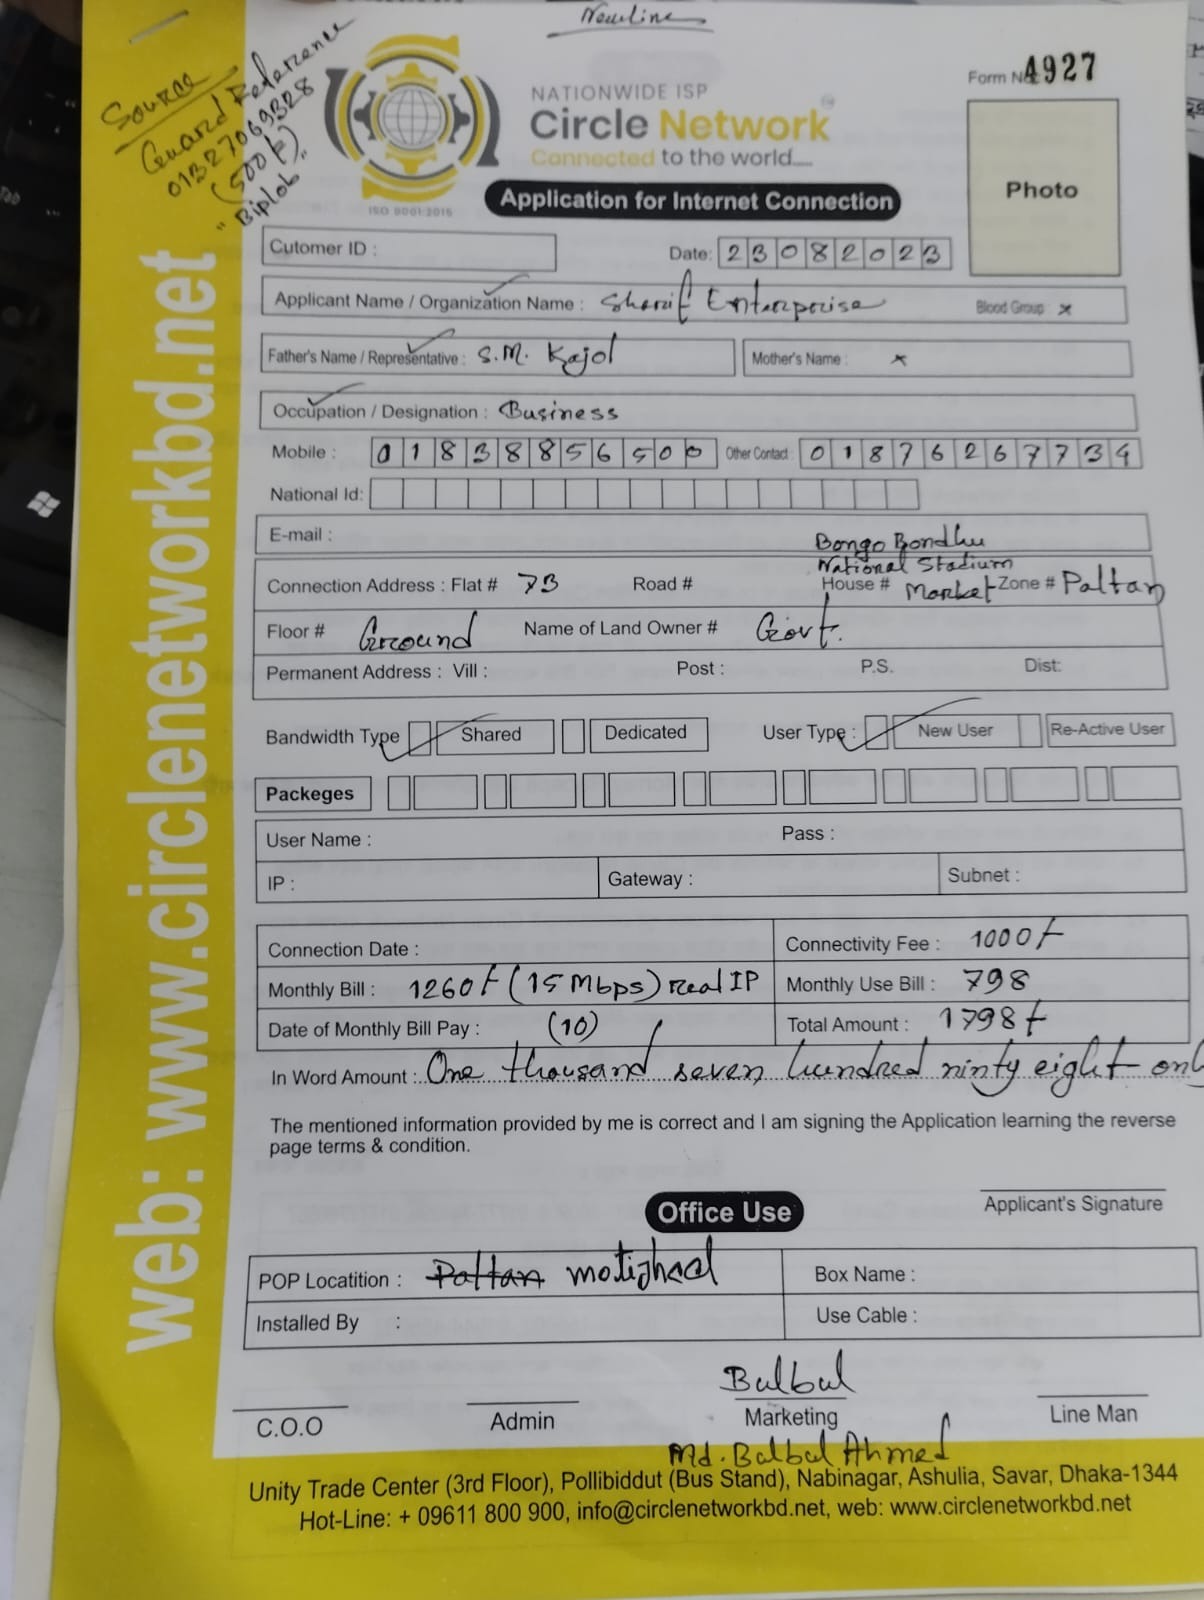 Newline
Source
Guard Reference
01327069328
(500৳)
"Biplob"
Form No: 4927
NATIONWIDE ISP
Circle Network
Connected to the world.....
ISO 9001:2015
Application for Internet Connection
Photo
Cutomer ID :
Date: 23082023
Applicant Name / Organization Name : Sharif Enterprise Blood Group : ×
Father's Name / Representative : S.M. Kajol Mother's Name : ×
Occupation / Designation : Business
Mobile : 01838856500 Other Contact : 01876267734
National Id:
E-mail :
Bongo Bondhu
National Stadium
Connection Address : Flat # 73 Road # House # Market Zone # Paltan
Floor # Ground Name of Land Owner # Govt.
Permanent Address : Vill : Post : P.S. Dist:
Bandwidth Type Shared Dedicated User Type : New User Re-Active User
Packeges
User Name : Pass :
IP : Gateway : Subnet :
Connection Date : Connectivity Fee : 1000৳
Monthly Bill : 1260৳ (15 Mbps) real IP Monthly Use Bill : 798
Date of Monthly Bill Pay : (10) Total Amount : 1798৳
In Word Amount : One thousand seven hundred ninty eight only
The mentioned information provided by me is correct and I am signing the Application learning the reverse
page terms & condition.
Applicant's Signature
Office Use
POP Locatition : Paltan motijheel Box Name :
Installed By : Use Cable :
Bulbul
C.O.O Admin Marketing Line Man
Md. Bulbul Ahmed
Unity Trade Center (3rd Floor), Pollibiddut (Bus Stand), Nabinagar, Ashulia, Savar, Dhaka-1344
Hot-Line: + 09611 800 900, info@circlenetworkbd.net, web: www.circlenetworkbd.net
web: www.circlenetworkbd.net